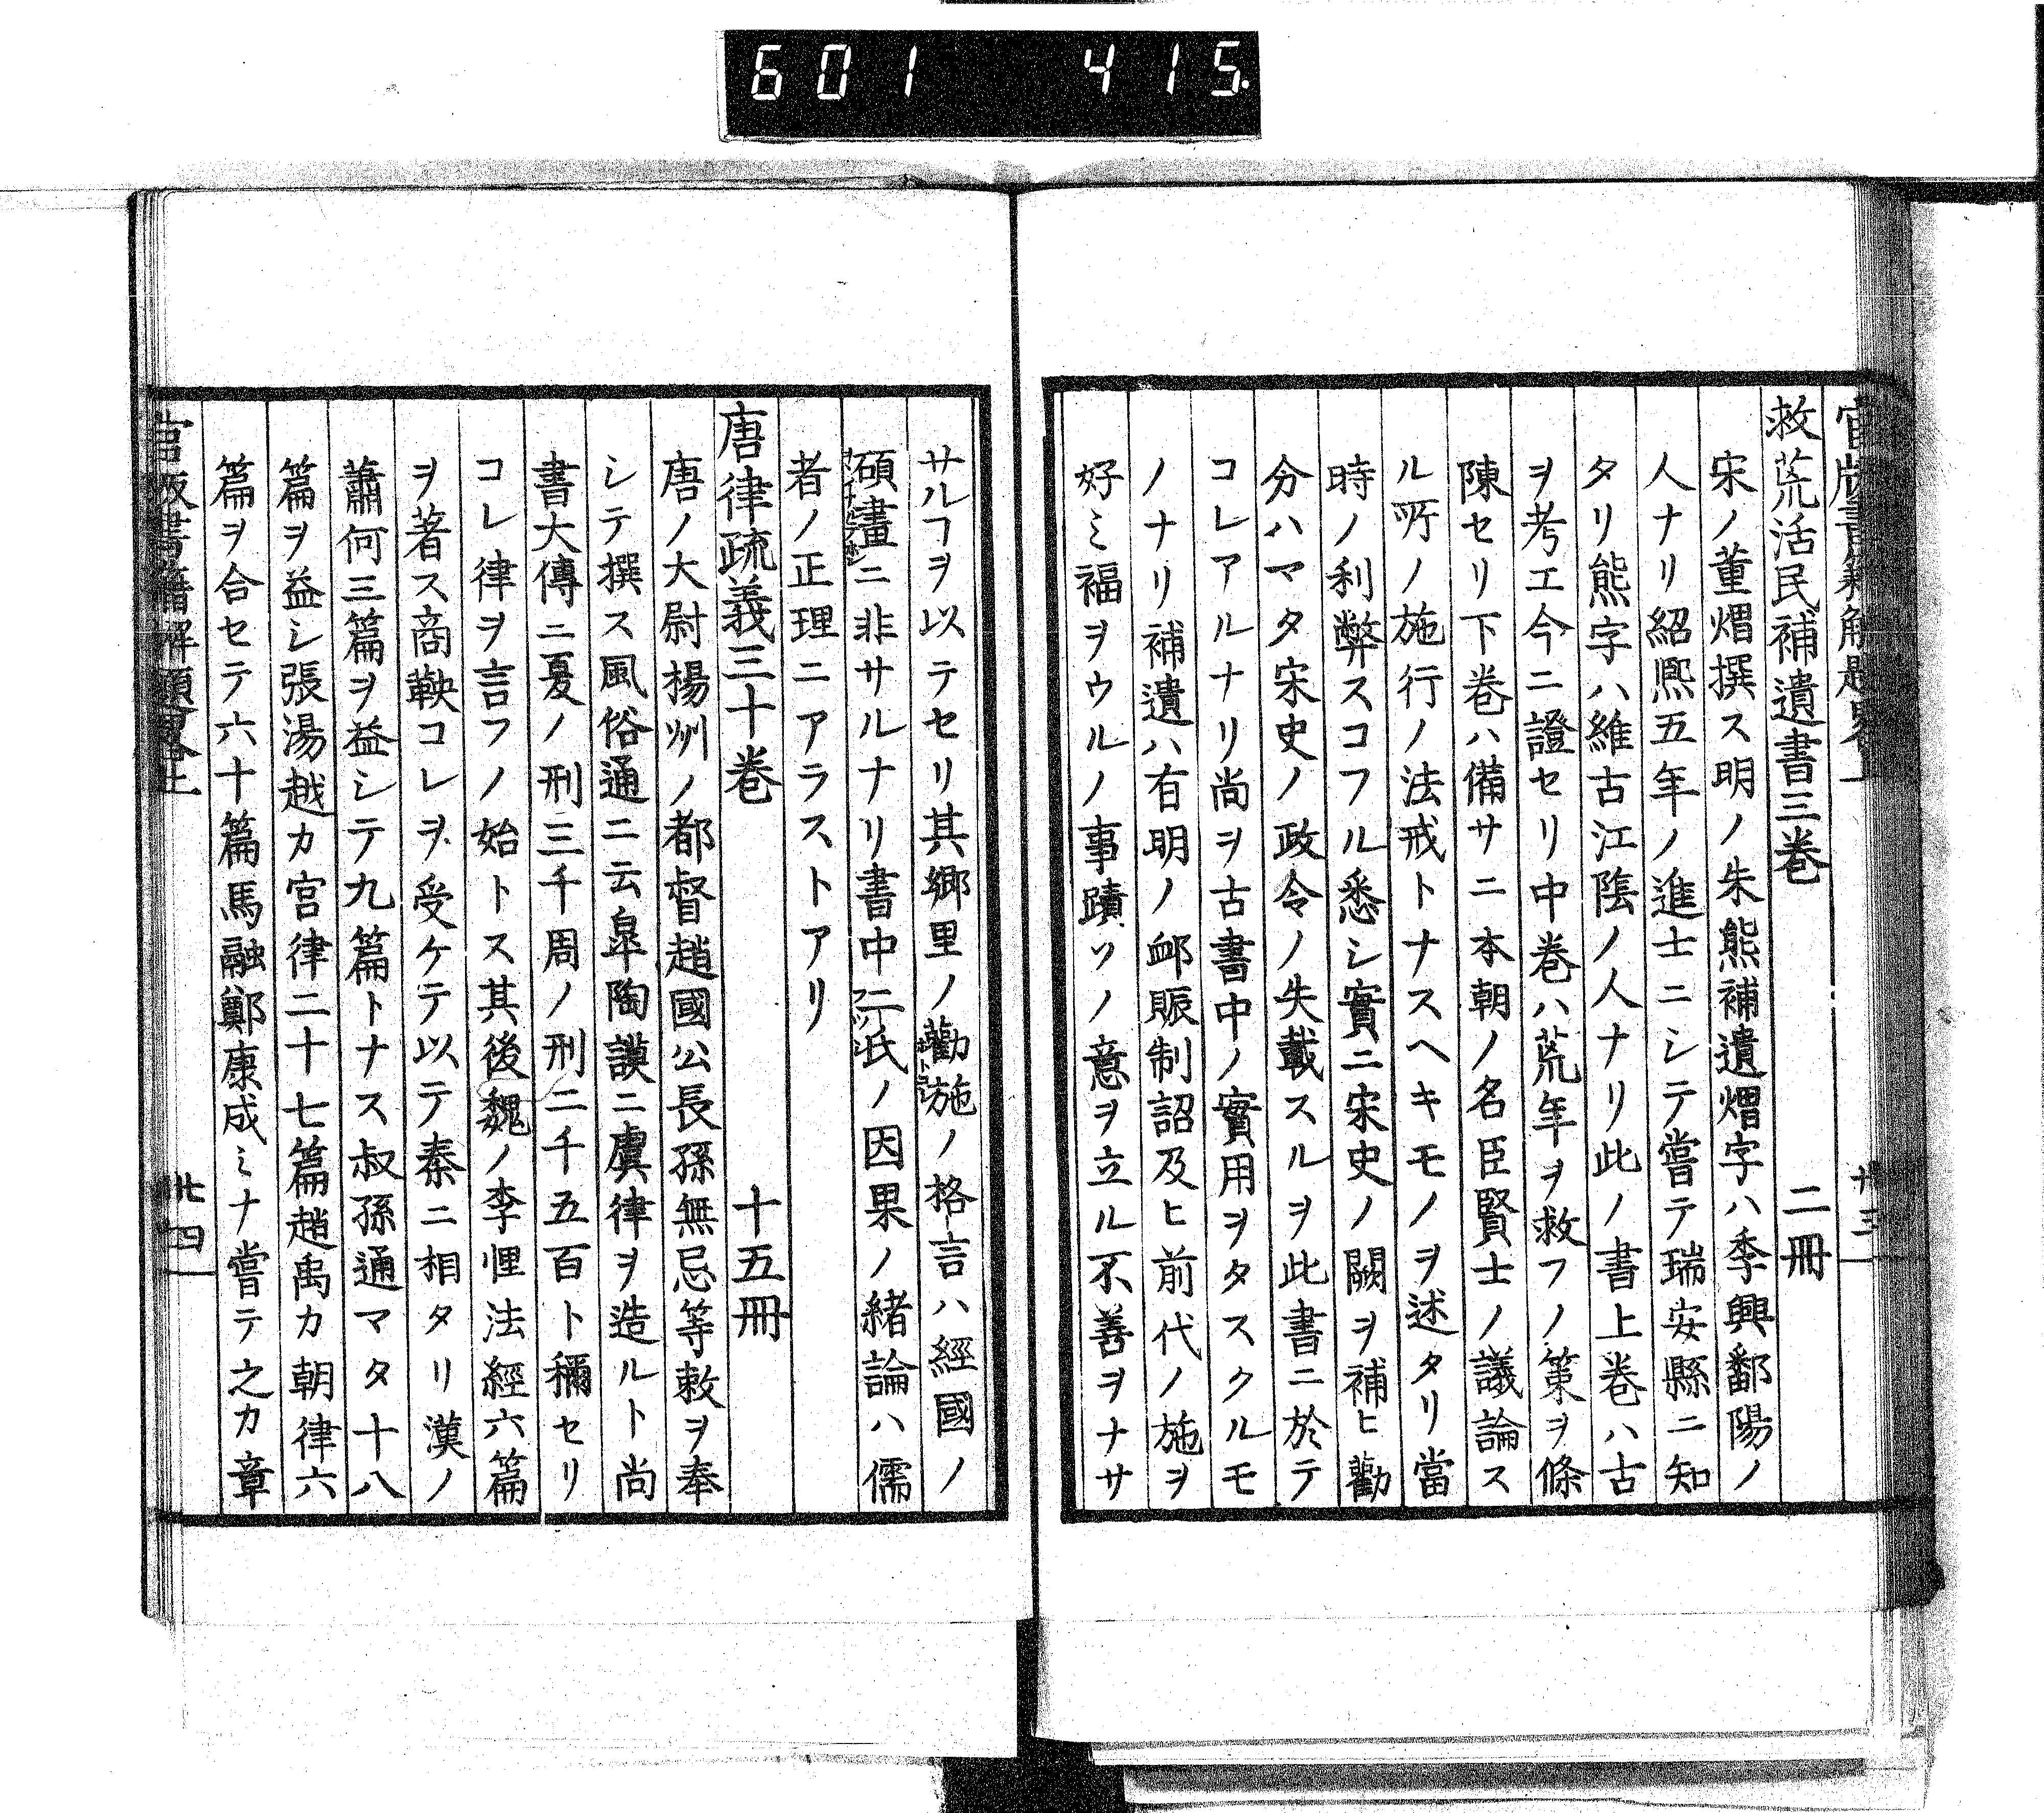 601 415.
官版書籍解題畧上 卅三
救荒活民補遺書三巻 二冊
宋ノ董煟撰ス明ノ朱熊補遺煟字ハ季興鄱陽ノ
人ナリ紹熈五年ノ進士ニシテ嘗テ瑞安縣ニ知
タリ熊字ハ維古江陰ノ人ナリ此ノ書上巻ハ古
ヲ考エ今ニ證セリ中巻ハ荒年ヲ救フノ策ヲ條
陳セリ下巻ハ備サニ本朝ノ名臣賢士ノ議論ス
ル所ノ施行ノ法戒トナスヘキモノヲ述タリ當
時ノ利弊スコフル悉シ實ニ宋史ノ闕ヲ補ヒ勸
分ハマタ宋史ノ政令ノ失載スルヲ此書ニ於テ
コレアルナリ尚ヲ古書中ノ實用ヲタスクルモ
ノナリ補遺ハ有明ノ䘏賑制詔及ヒ前代ノ施ヲ
好ミ福ヲウルノ事蹟ソノ意ヲ立ル不善ヲナサ
サルヿヲ以テセリ其郷里ノ勸施ノ格言ハ經國ノ
碩畫ニ非サルナリ書中二氏ノ因果ノ緒論ハ儒
者ノ正理ニアラストアリ
唐律疏義三十巻 十五冊
唐ノ大尉揚州ノ都督趙國公長孫無忌等敕ヲ奉
シテ撰ス風俗通ニ云皐陶謨ニ虞律ヲ造ルト尚
書大傳ニ夏ノ刑三千周ノ刑二千五百ト稱セリ
コレ律ヲ言フノ始トス其後魏ノ李悝法經六篇
ヲ著ス商鞅コレヲ受ケテ以テ秦ニ相タリ漢ノ
蕭何三篇ヲ益シテ九篇トナス叔孫通マタ十八
篇ヲ益シ張湯越カ宮律二十七篇趙禹カ朝律六
篇ヲ合セテ六十篇馬融鄭康成ミナ嘗テ之カ章
官版書籍解題畧上 卅四